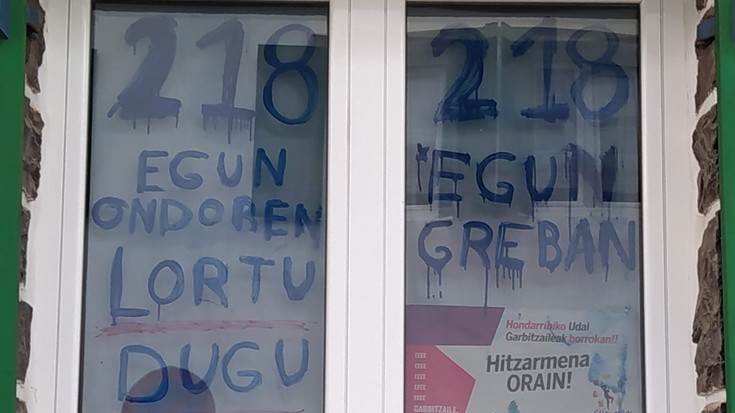 218
EGUN
ONDOREN
LORTU
DUGU
218
EGUN
GREBAN
Hondarribiko Udal
Garbitzaileak borrokan!!
Hitzarmena
ORAIN!
GARBITZAILE